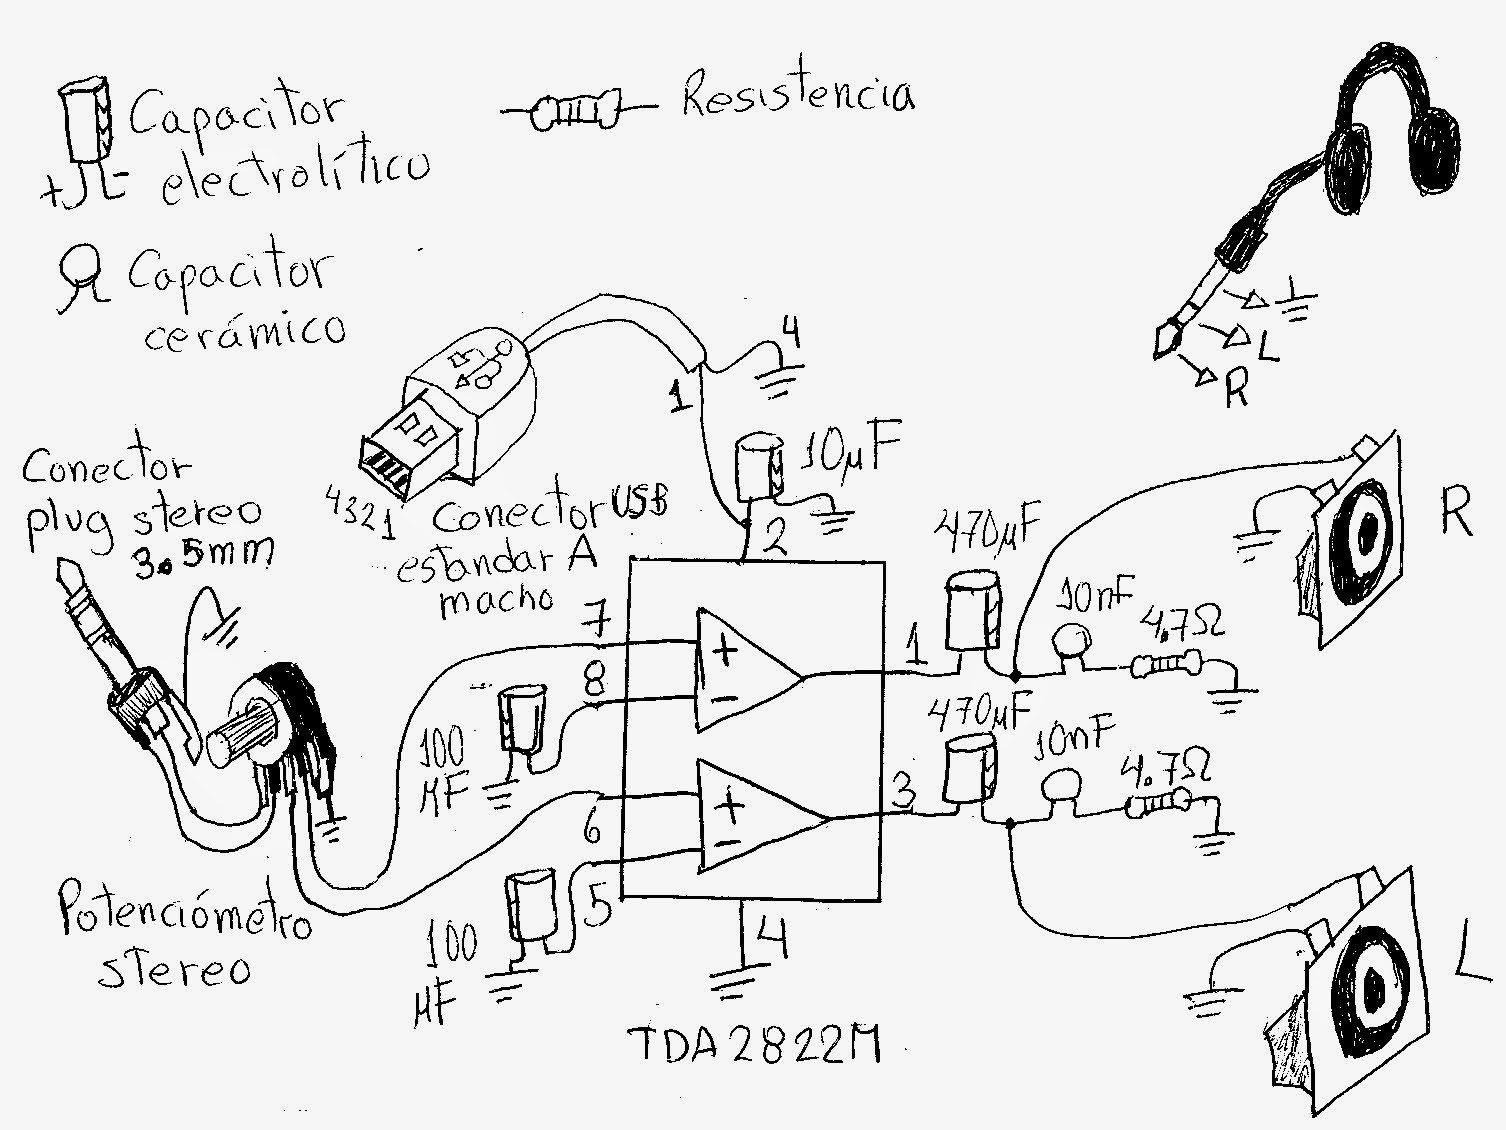 Capacitor
electrolítico
+ -
Resistencia
Capacitor
cerámico
L
R
4
1
10µF
2
4321
Conector USB
estandar A
macho
Conector
plug stereo
3.5mm
7
8
100
µF
6
5
100
µF
+
-
+
-
1
3
4
470µF
10nF
4.7Ω
470µF
10nF
4.7Ω
R
L
Potenciómetro
stereo
TDA2822M